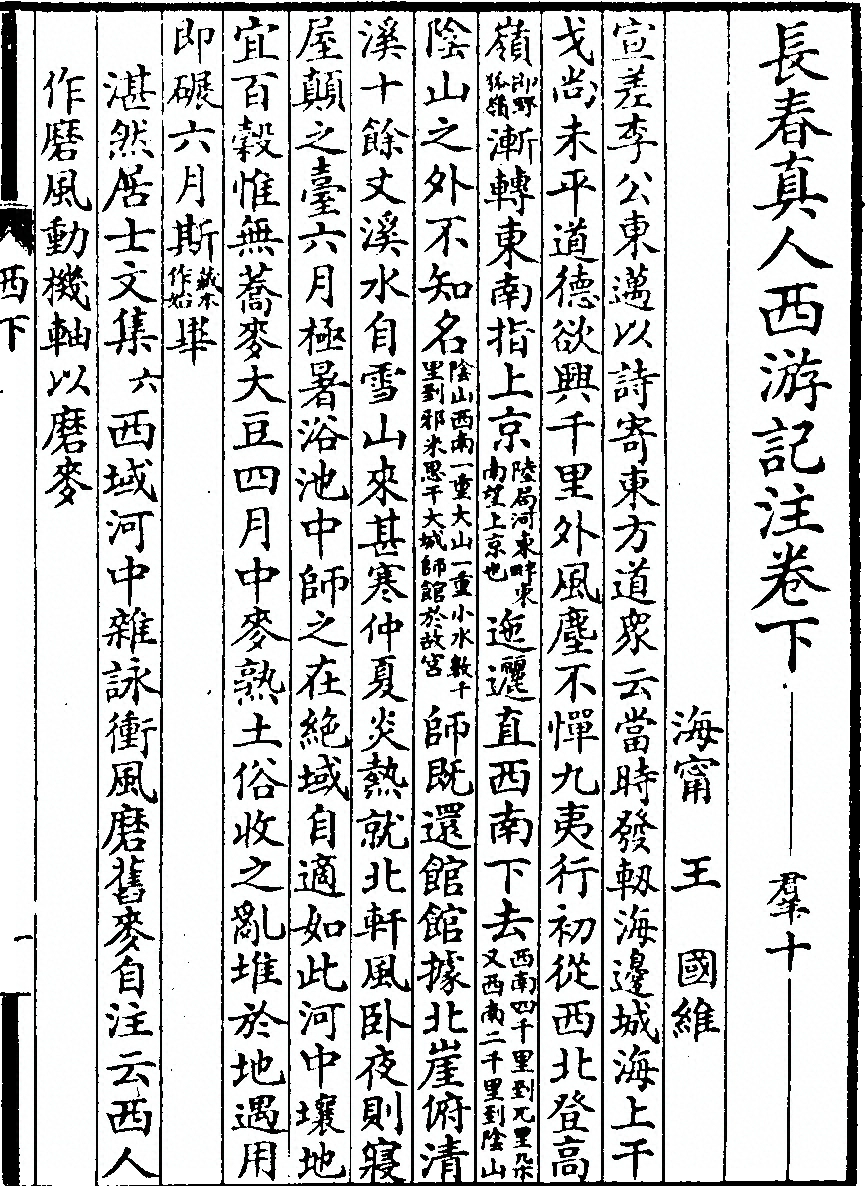 長春真人西游記注卷下
羣十
海甯 王 國維
宣差李公東邁以詩寄東方道眾云當時發軔海邊城海上干
戈尚未平道德欲興千里外風塵不憚九夷行初從西北登高
嶺即野狐嶺漸轉東南指上京陸局河東畔東南望上京也迤邐直西南下去西南四千里到兀里朶又西南二千里到陰山
陰山之外不知名陰山西南一重大山一重小水數千里到邪米思干大城師館於故宮師既還館館據北崖俯清
溪十餘丈溪水自雪山來甚寒仲夏炎熱就北軒風臥夜則寢
屋顛之臺六月極暑浴池中師之在絕域自適如此河中壤地
宜百穀惟無蕎麥大豆四月中麥熟土俗收之亂堆於地遇用
即碾六月斯藏本作始畢
湛然居士文集六西域河中雜詠衝風磨舊麥自注云西人
作磨風動機軸以磨麥
西下
一